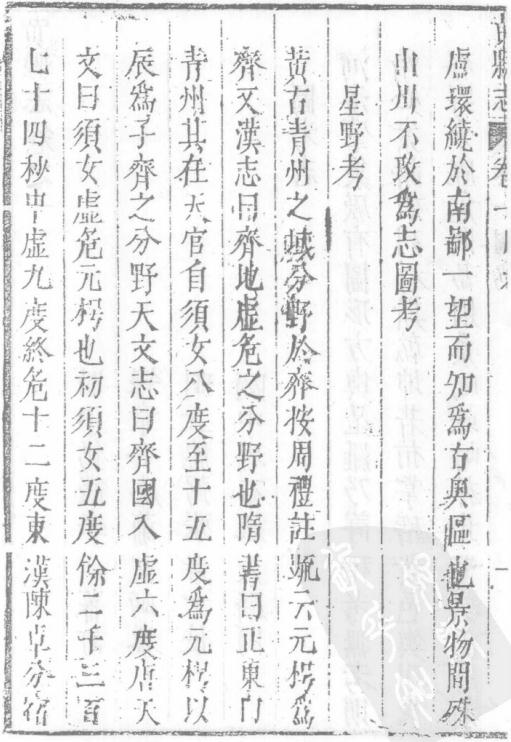 縣志 卷一
盧環繞於南鄙一望而知爲右奧區也景物間殊
山川不改爲志圖考
星野考
黃古青州之域分野於齊按周禮註疏云元枵爲
齊又漢志曰齊地虛危之分野也隋書曰正東曰
青州其在天官自須女八度至十五度爲元枵以
辰爲子齊之分野天文志曰齊國入虛六度唐天
文曰須女虛危元枵也初須女五度餘二千三百
七十四秒中虛九度終危十二度東漢陳卓分宿
一